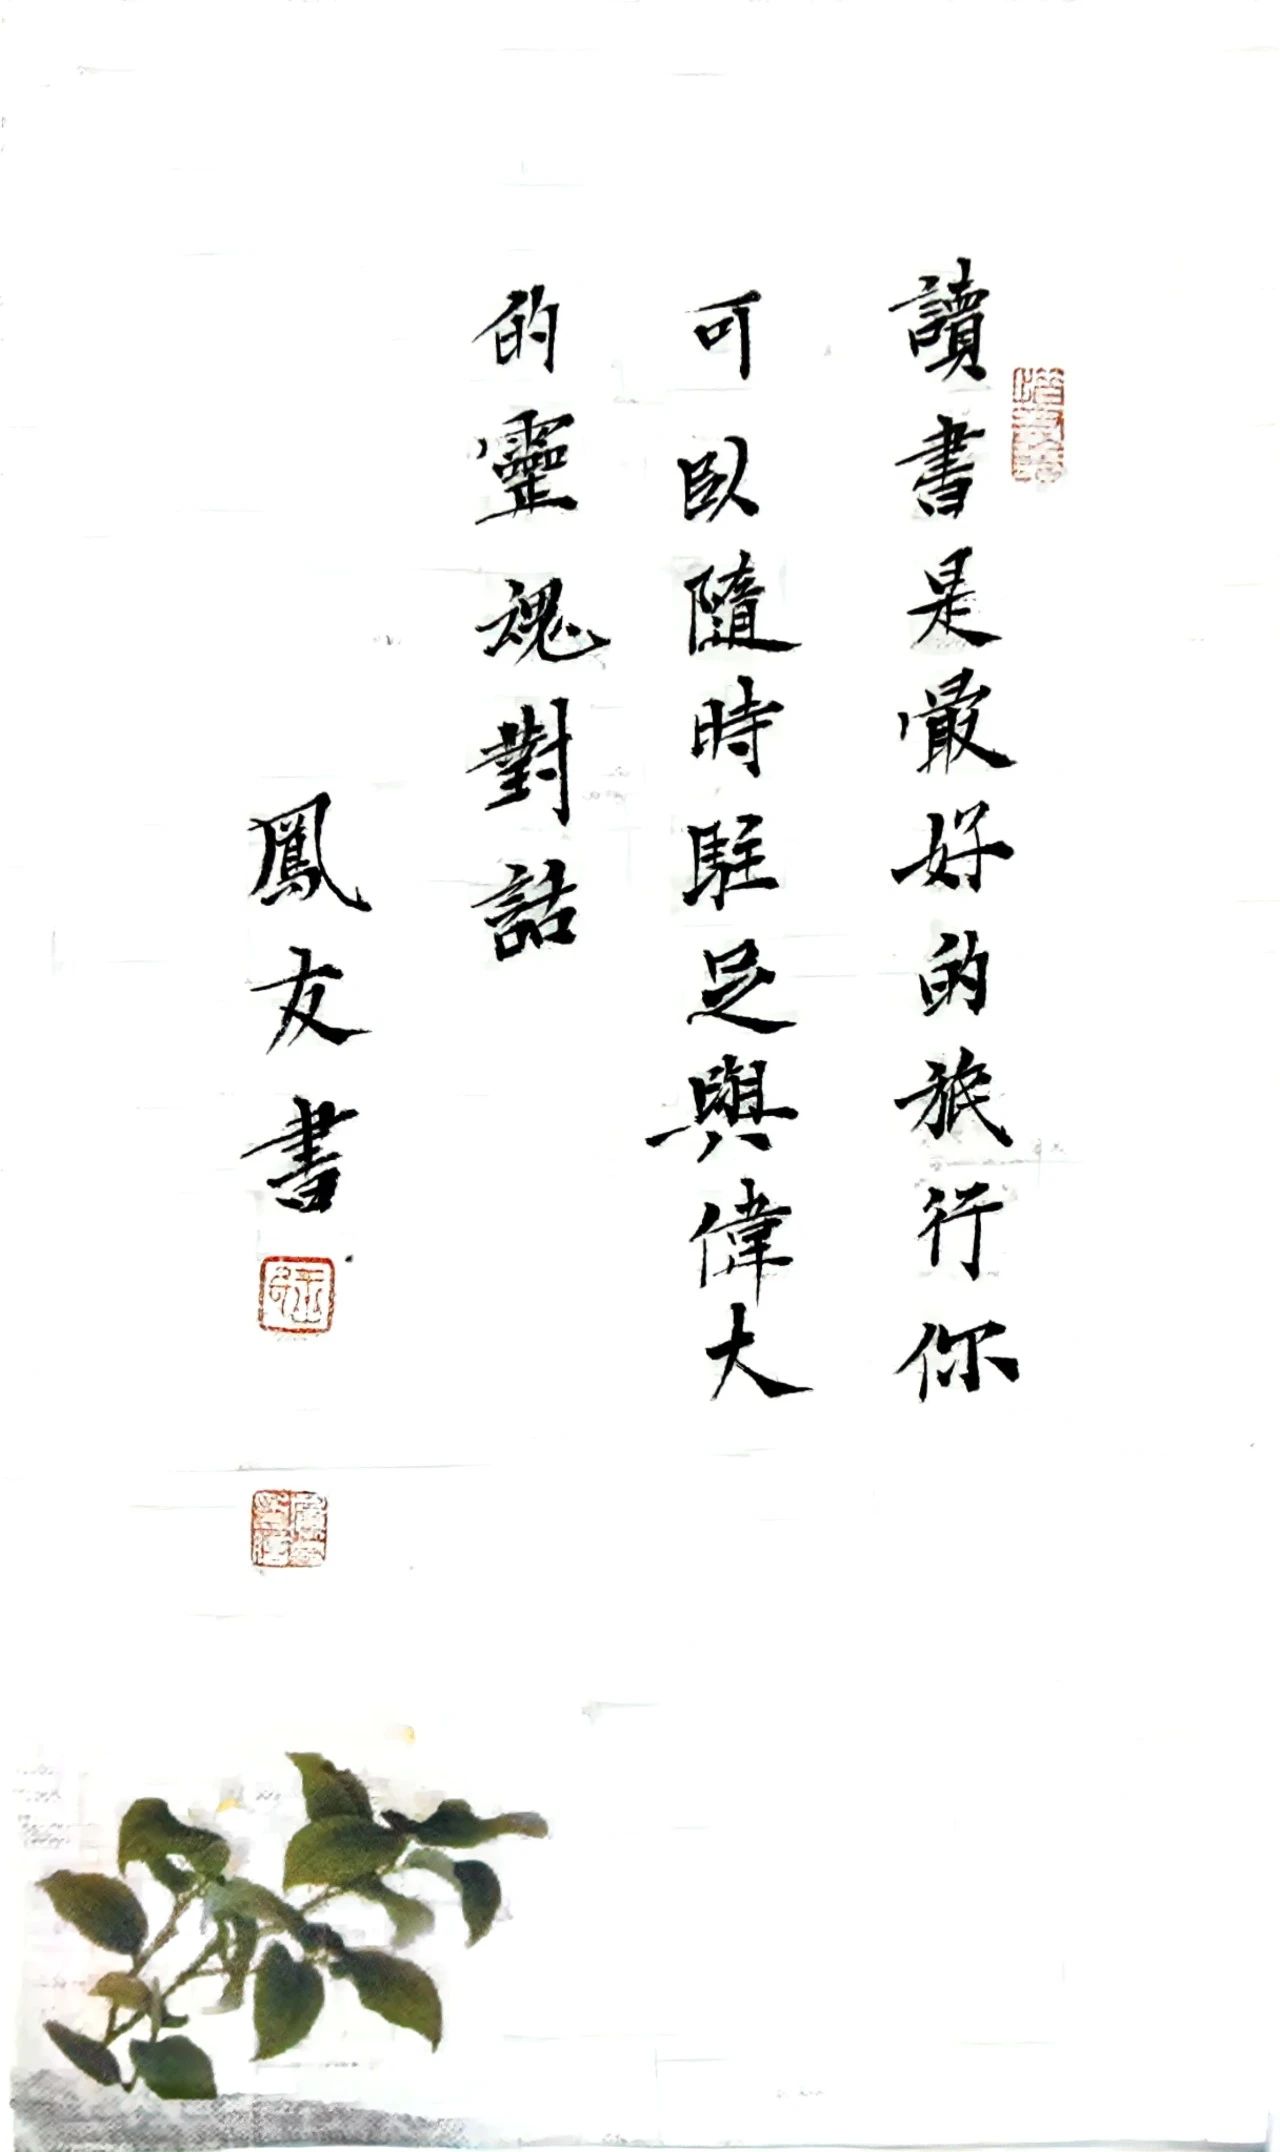 讀書是最好的旅行你
可臥隨時駐足與偉大
的靈魂對話
鳳友書